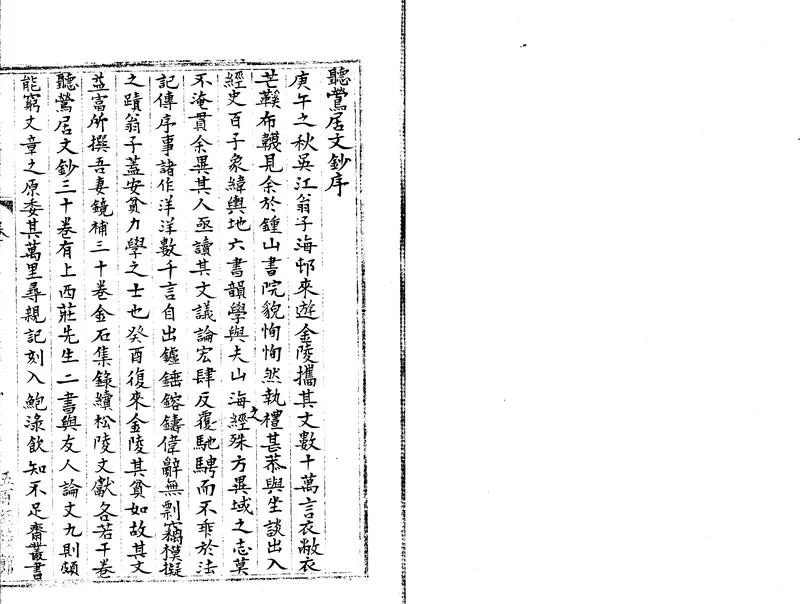 聽鶯居文鈔序
庚午之秋吳江翁子海邨來遊金陵攜其文數十萬言衣敝衣
芒鞵布韈見余於鍾山書院貌恂恂然執禮甚恭與之坐談出入
經史百子象緯輿地六書韻學與夫山海經殊方異域之志莫
不淹貫余異其人亟讀其文議論宏肆反覆馳騁而不乖於法
記傳序事諸作洋洋數千言自出鑪錘鎔鑄偉辭無剽竊摸擬
之蹟翁子蓋安貧力學之士也癸酉復來金陵其貧如故其文
益富所撰吾妻鏡補三十卷金石集錄續松陵文獻各若干卷
聽鶯居文鈔三十卷有上西莊先生二書與友人論文九則頗
能窮文章之原委其萬里尋親記刻入鮑淥飲知不足齋叢書